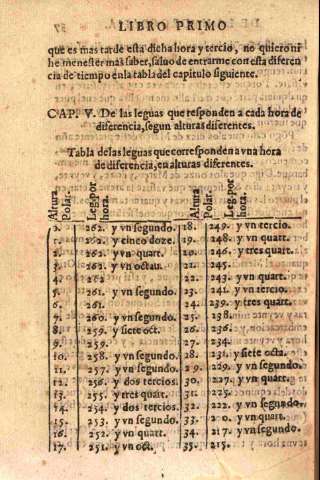 LIBRO PRIMO
que es mas tarde esta dicha hora y tercio, no quiero ni
he menester mas saber, saluo de entrarme con esta diferen
cia de tiempo en la tabla del capitulo siguiente.
CAP. V. De las leguas que responden a cada hora de
diferencia, segun alturas diferentes.
Tabla de las leguas que corresponden a vna hora
de diferencia, en alturas diferentes.
Altura Pola: Leg. por hora. Altura Polar. Leg. por hora.
262. y vn segundo. 18. 249. y vn tercio.
1. 262. y cinco doze. 19. 248. y vn quart.
2. 262. y vn quart. 20. 246. y tres quart.
3. 262. y vn octau. 21. 245.
4. 262 22. 243. y vn quart.
5. 261. y vn segundo. 23. 241. y vn tercio.
6. 261. 24. 239. y tres quart.
7. 260. y vn segundo. 25. 238.
8. 259. y siete oct. 26. 236.
9. 259. 27. 234.
10. 258. y vn segundo. 28. 231. y siete octa.
11. 257. y vn segundo. 29. 229. y vn segundo.
12. 256. y dos tercios. 30. 227. y vn quart.
13. 255. y tres quart. 31. 225.
14. 254. y dos tercios. 32. 222. y vn segundo.
15. 253. y vn segundo. 33. 220. y vn quart.
16. 252. y vn quart. 34. 217. y vn segundo.
17. 251. y vn oct. 35. 215.